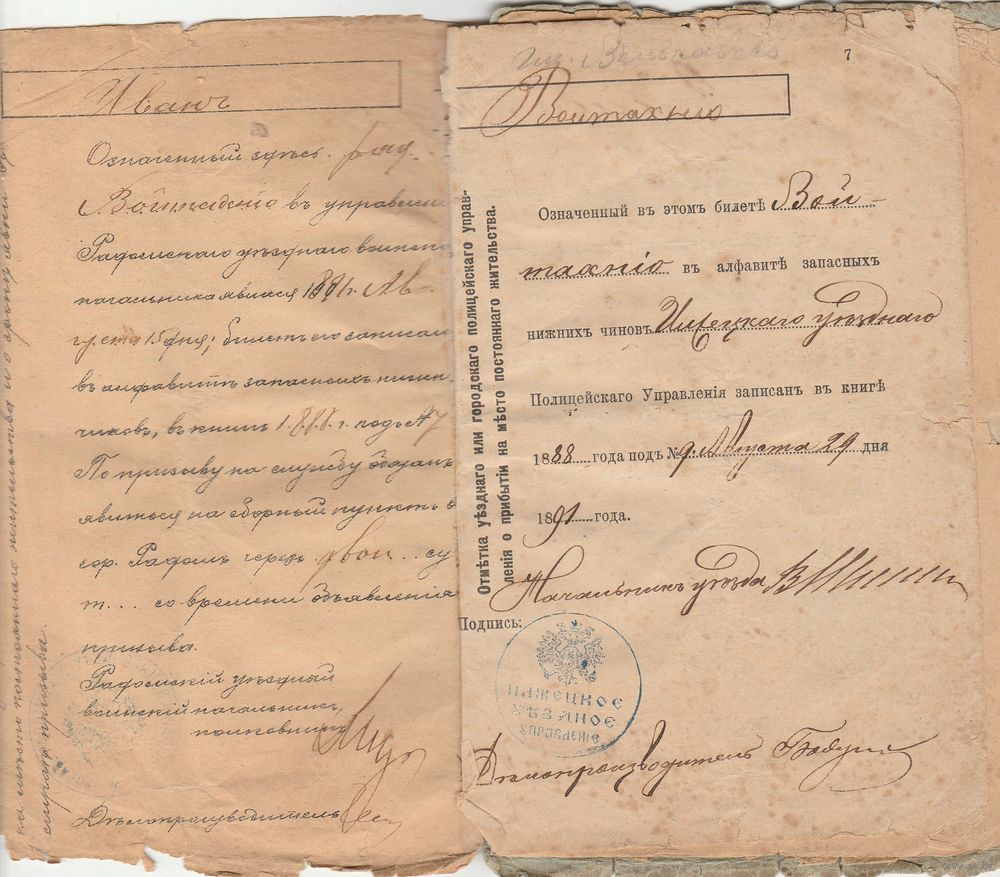 Иванъ
Означенный здѣсь. ряд.
въ управленіе
Радомскаго уѣзднаго воинска
начальника явился 1891 г. Ав-
густа 15 дня; билетъ его записанъ
въ алфавитъ запасныхъ нижн.
чиновъ, въ книгѣ 1888 г. подъ № 7
По призыву на службу обязанъ
явиться на сборный пунктъ в
гор. Радомъ черезъ двои.. су
т... со времени объявленія
призыва.
Радомскій уѣздный
воинскій начальникъ,
полковникъ
Дѣлопроизводитель
на мѣсто постояннаго жительства и о
случаѣ призыва.
7
Войтахнію
Отмѣтка уѣзднаго или городскаго полицейскаго управ-
ленія о прибытіи на мѣсто постояннаго жительства.
Означенный въ этомъ билетѣ Вой-
тахнію въ алфавитѣ запасныхъ
нижнихъ чиновъ Илжецкаго уѣзднаго
Полицейскаго Управленія записанъ въ книгѣ
1888 года подъ № 9. Августа 29 дня
1891 года.
Начальникъ уѣзда
Подпись:
ИЛЖЕЦКОЕ
УѢЗДНОЕ
УПРАВЛЕНІЕ
Дѣлопроизводитель